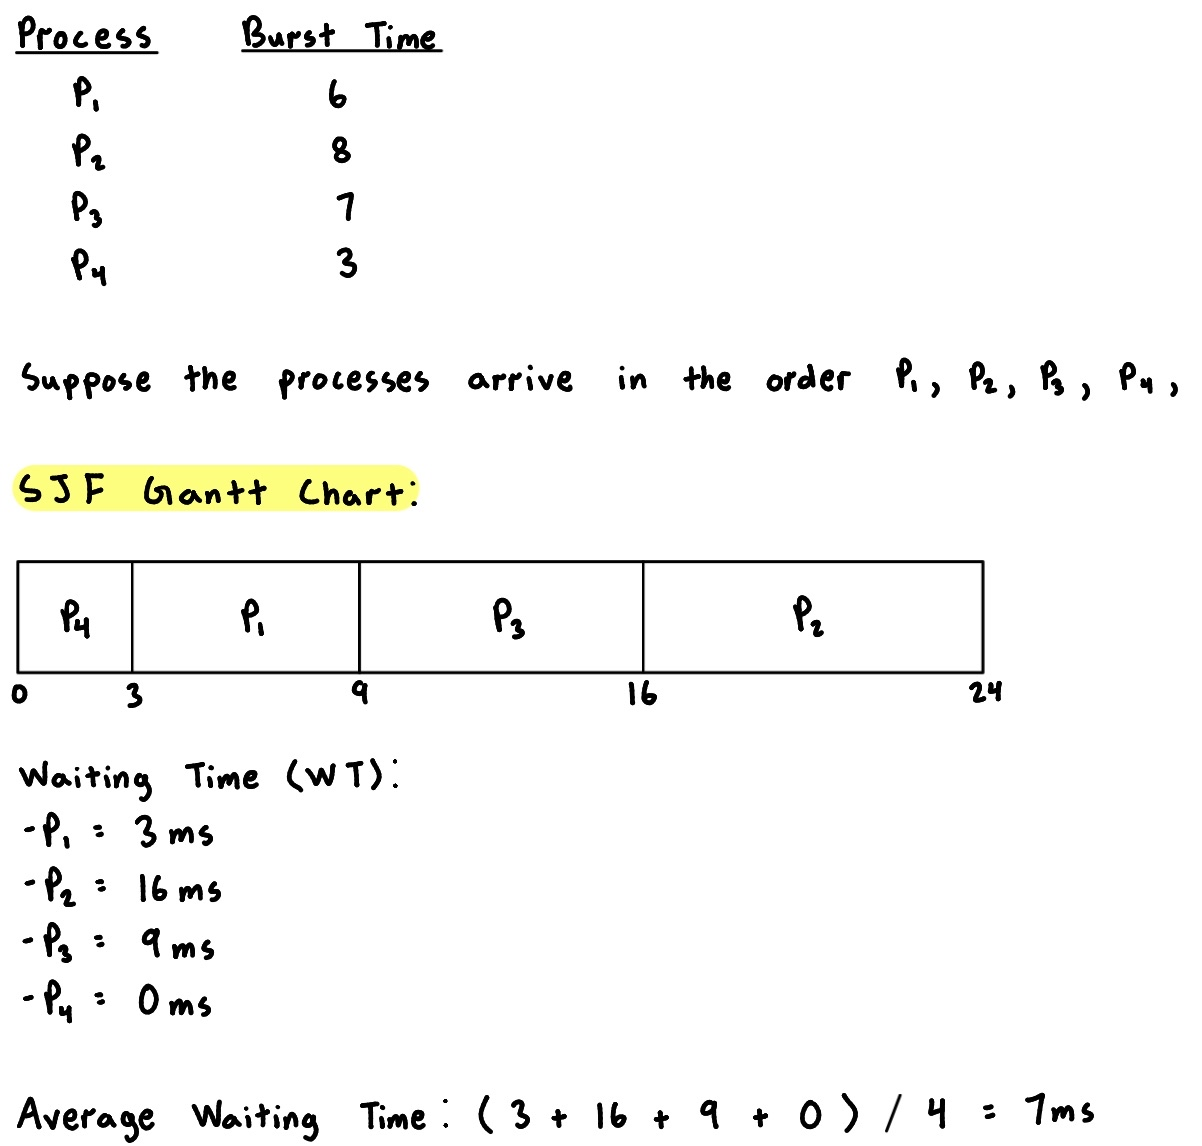 Process Burst Time
P₁ 6
P₂ 8
P₃ 7
P₄ 3
Suppose the processes arrive in the order P₁, P₂, P₃, P₄,
SJF Gantt Chart:
P₄ P₁ P₃ P₂
0 3 9 16 24
Waiting Time (WT):
-P₁ = 3 ms
-P₂ = 16 ms
-P₃ = 9 ms
-P₄ = 0 ms
Average Waiting Time: (3 + 16 + 9 + 0) / 4 = 7ms